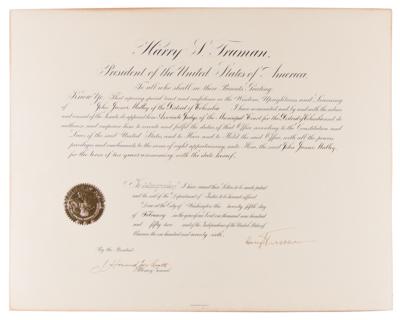 Harry S. Truman,
President of the United States of America.
To all who shall see these Presents, Greeting:
Know Ye, That reposing special trust and confidence in the Wisdom, Uprightness and Learning
of John James Malloy of the District of Columbia I have nominated and by and with the advice
and consent of the Senate do appoint him Associate Judge of the Municipal Court for the District of Columbia and do
authorize and empower him to execute and fulfil the duties of that Office according to the Constitution and
Laws of the said United States, and to Have and to Hold the said Office, with all the powers,
privileges and emoluments to the same of right appertaining unto Him, the said John James Malloy,
for the term of ten years commencing with the date hereof.
In Testimony whereof, I have caused these Letters to be made patent
and the seal of the Department of Justice to be hereunto affixed.
Done at the City of Washington this twenty fifth day
of February in the year of our Lord one thousand nine hundred
and fifty two and of the Independence of the United States of
America the one hundred and seventy sixth.
By the President:
Harry Truman
J. Howard McGrath
Attorney General